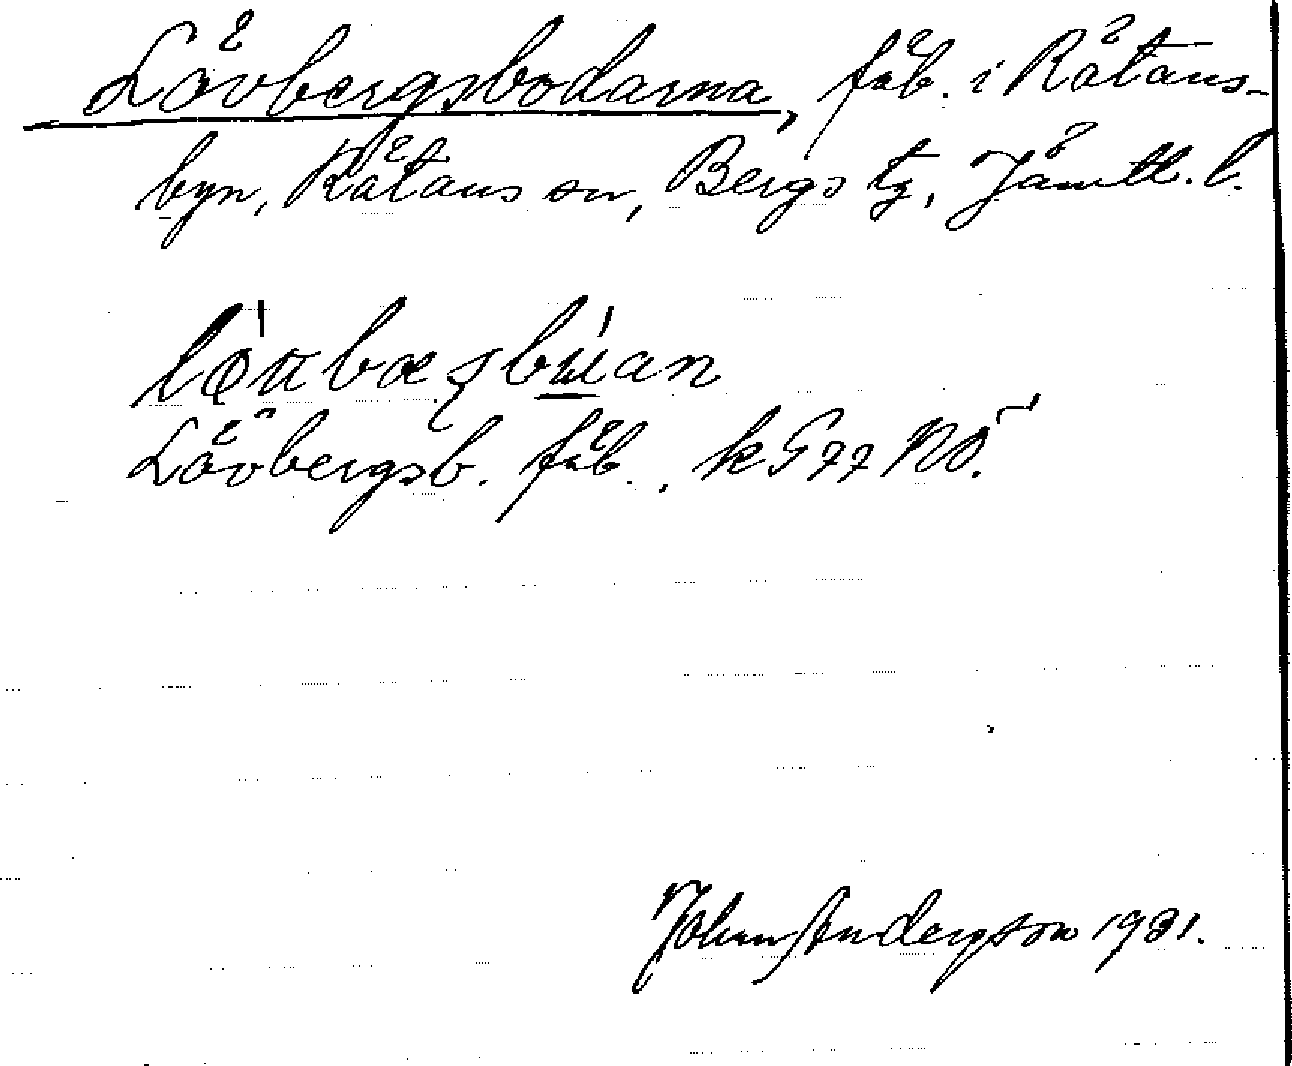 Lövbergsbodarna, fäb. i Rätans-
byn, Rätans sn, Bergs tg, Jämtl. l.
Lövbergsb. fäb., k G 77 NÖ.
John Anderson 1931.